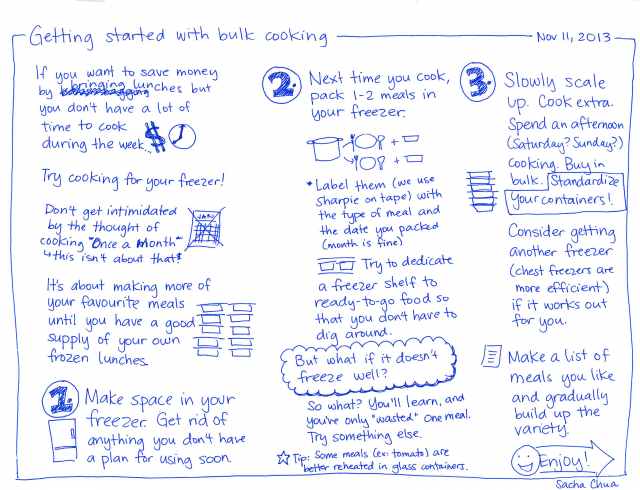 Getting started with bulk cooking
Nov 11, 2013
If you want to save money
by bringing lunches but
you don't have a lot of
time to cook
during the week...
$
Try cooking for your freezer!
Don't get intimidated
by the thought of
cooking "Once a Month"
this isn't about that!
JAN
It's about making more of
your favourite meals
until you have a good
supply of your own
frozen lunches.
1.
Make space in your
freezer. Get rid of
anything you don't have
a plan for using soon.
2.
Next time you cook,
pack 1-2 meals in
your freezer.
+
+
* Label them (we use
sharpie on tape) with
the type of meal and
the date you packed
(month is fine)
Try to dedicate
a freezer shelf to
ready-to-go food so
that you don't have to
dig around.
But what if it doesn't
freeze well?
So what? You'll learn, and
you've only "wasted" one meal.
Try something else.
Tip: Some meals (ex: tomato) are
better reheated in glass containers.
3.
Slowly scale
up. Cook extra.
Spend an afternoon
(Saturday? Sunday?)
cooking. Buy in
bulk. Standardize
your containers!
Consider getting
another freezer
(chest freezers are
more efficient)
if it works out
for you.
Make a list of
meals you like
and gradually
build up the
variety.
Enjoy!
Sacha Chua